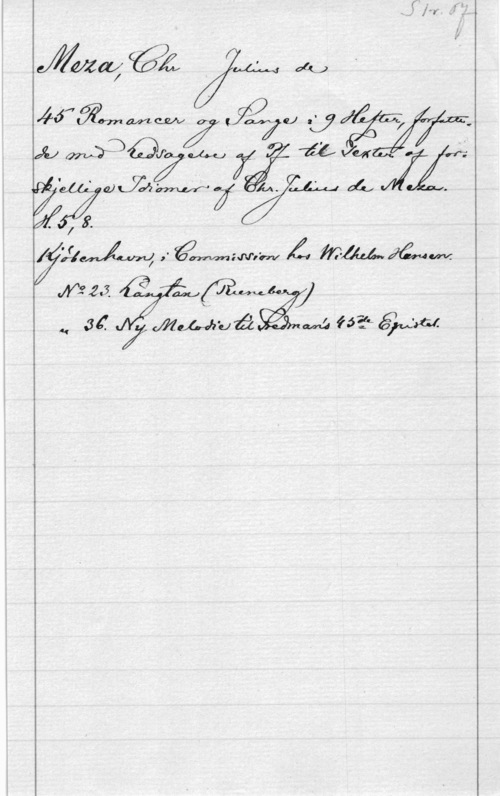 Str. 67
Meza, Chr Julius de
45 Romancer og Sange i 9 Hefter, forfatte-
de med Ledsagelse af Pf til Texter af for-
skjellige Idiomer af Chr. Julius de Meza.
H. 5, 8.
Kjöbenhavn, i Commission hos Wilhelm Hansen.
No 23. Längtan (Runeberg)
„ 36. Ny Melodie til Fredman's 45de Epistel.